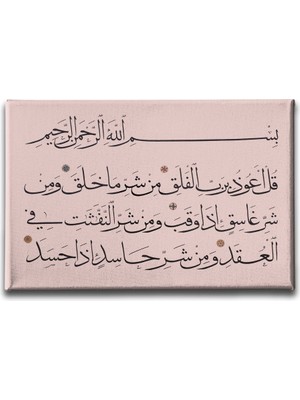 بِسْمِ اللَّهِ الرَّحْمَنِ الرَّحِيمِ
قُلْ أَعُوذُ بِرَبِّ الْفَلَقِ مِنْ شَرِّ مَا خَلَقَ وَمِنْ
شَرِّ غَاسِقٍ إِذَا وَقَبَ وَمِنْ شَرِّ النَّفَّثَتِ فِي
الْعُقَدِ وَمِنْ شَرِّ حَاسِدٍ إِذَا حَسَدَ